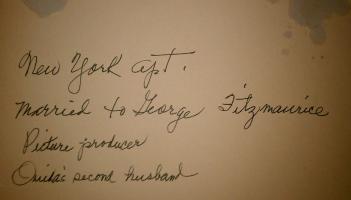 New York apt.
Married to George Fitzmaurice
Picture producer
Ouida's second husband